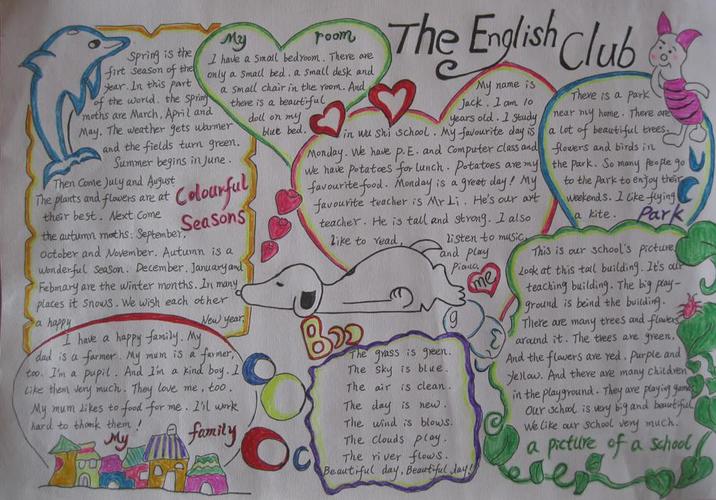 The English Club
Spring is the
firt season of the
year. In this part
of the world. the spring
moths are March, April and
May. The weather gets warmer
and the fields turn green.
Summer begins in June.
Then Come July and August
The plants and flowers are at
their best. Next come
the autumn moths: September,
October and November. Autumn is a
wonderful season. December, January and
February are the winter months. In many
places it snows. We wish each other
a happy New year.
Colourful
Seasons
My room
I have a small bedroom. There are
only a small bed. a small desk and
a small chair in the room. And
there is a beautiful
doll on my
blue bed.
My name is
Jack. I am 10
years old. I study
in wu shi school. My favourite day is
Monday. We have P.E. and Computer class and
we have potatoes for lunch. Potatoes are my
favourite food. Monday is a great day! My
favourite teacher is Mr Li. He's our art
teacher. He is tall and strong. I also
like to read, listen to music,
and play
piano.
me
There is a park
near my home. There are
a lot of beautiful trees,
flowers and birds in
the park. So many people go
to the park to enjoy their
weekends. I like flying
a kite.
Park
I have a happy family. My
dad is a farmer. My mum is a farmer,
too. I'm a pupil. And I'm a kind boy. I
like them very much. They love me, too.
My mum likes to food for me. I'll work
hard to thank them!
My family
The grass is green.
The sky is blue.
The air is clean.
The day is new.
The wind is blows.
The clouds play.
The river flows.
Beautiful day, Beautiful day!
This is our school's picture
Look at this tall building. It's our
teaching building. The big play-
ground is beind the building.
There are many trees and flowers
around it. The trees are green.
And the flowers are red. Purple and
Yellow. And there are many children
in the playground. They are playing games
Our school is very big and beautiful
We like our school very much.
a picture of a school